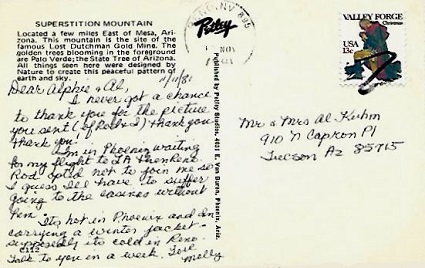 SUPERSTITION MOUNTAIN
Located a few miles East of Mesa, Ari-
zona. This mountain is the site of the
famous Lost Dutchman Gold Mine. The
golden trees blooming in the foreground
are Palo Verde; the State Tree of Arizona.
All things seen here were designed by
Nature to create this peaceful pattern of
earth and sky.
11/11/81
Dear Alphie & Al,
I never got a chance
to thank you for the picture
you sent (of Bobby) thank you
thank you!
I'm in Phoenix waiting
for my flight to LA then Reno.
Rod opted not to join me so
I guess I'll have to suffer
going to the casinos without
him.
It's hot in Phoenix and I'm
carrying a winter jacket -
supposedly its cold in Reno.
Talk to you in a week. Love
Molly
C112
Petley
Published by Petley Studios, 4051 E. Van Buren, Phoenix, Ariz.
NV 895
NOV
VALLEY FORGE
Christmas
USA
13c
Mr & Mrs Al Kuhm
910 N Capron Pl
Tucson Az 85715